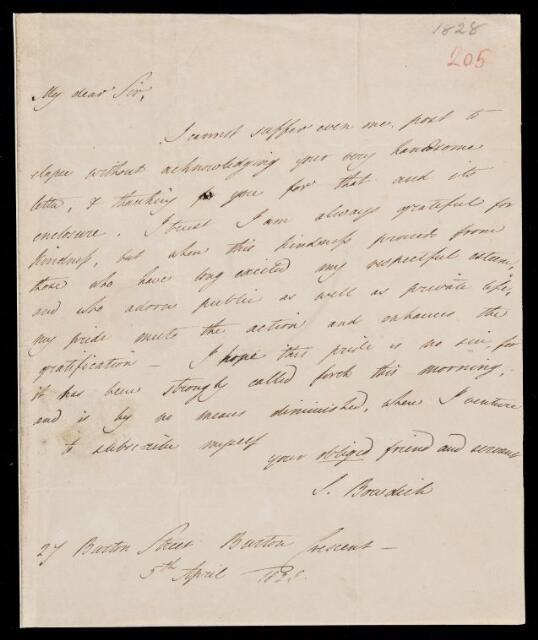 1828
205
My dear Sir,
I cannot suffer even one post to
elapse without acknowledging your very handsome
letter, & thanking you for that and its
enclosure. I trust I am always grateful for
kindness, but when this kindness proceeds from
those who have long excited my respectful esteem,
and who adorn public as well as private life,
my pride meets the action and enhances the
gratification — I hope this pride is no sin, for
it has been strongly called forth this morning,
and is by no means diminished, where I venture
to subscribe myself
your obliged friend and servant
S. Bowdich
27 Burton Street Burton Crescent —
5th April 1828.